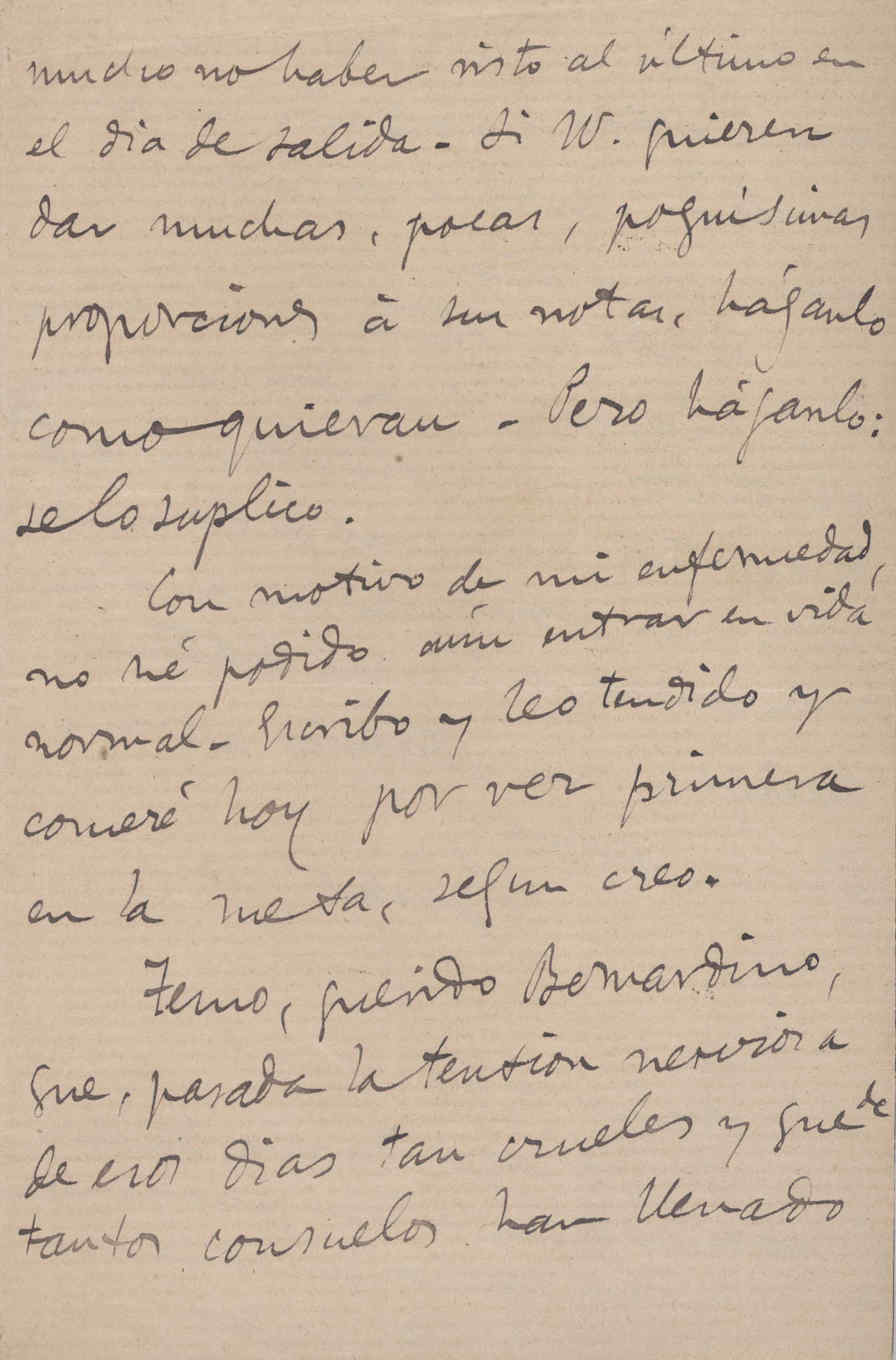 mucho no haber visto al último en
el dia de salida - Si VV. quieren
dar muchas, pocas, poquísimas
proporciones à sus notas, háganlo
como quieran - Pero háganlo:
se lo suplico.
Con motivo de mi enfermedad,
no hé podido aún entrar en vida
normal - Escribo y leo tendido y
comeré hoy por vez primera
en la mesa, segun creo.
Temo, querido Bernardino,
que, pasada la tension nerviosa
de esos dias tan crueles y que de
tantos consuelos han llenado